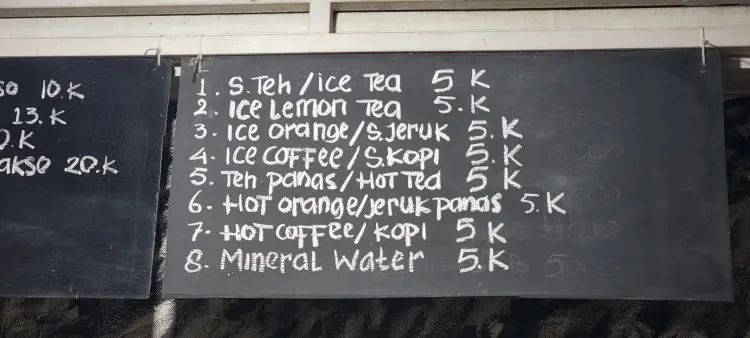 10 K
13. K
K
20. K
1. S.Teh / ice Tea 5 K
2. Ice Lemon Tea 5. K
3. Ice orange/S.Jeruk 5. K
4. Ice COFFee/S.KOPI 5. K
5. Teh panas/HOT Tea 5 K
6. HOT orange/jeruk panas 5. K
7. HOT COFFee/ KOPI 5 K
8. Mineral Water 5. K